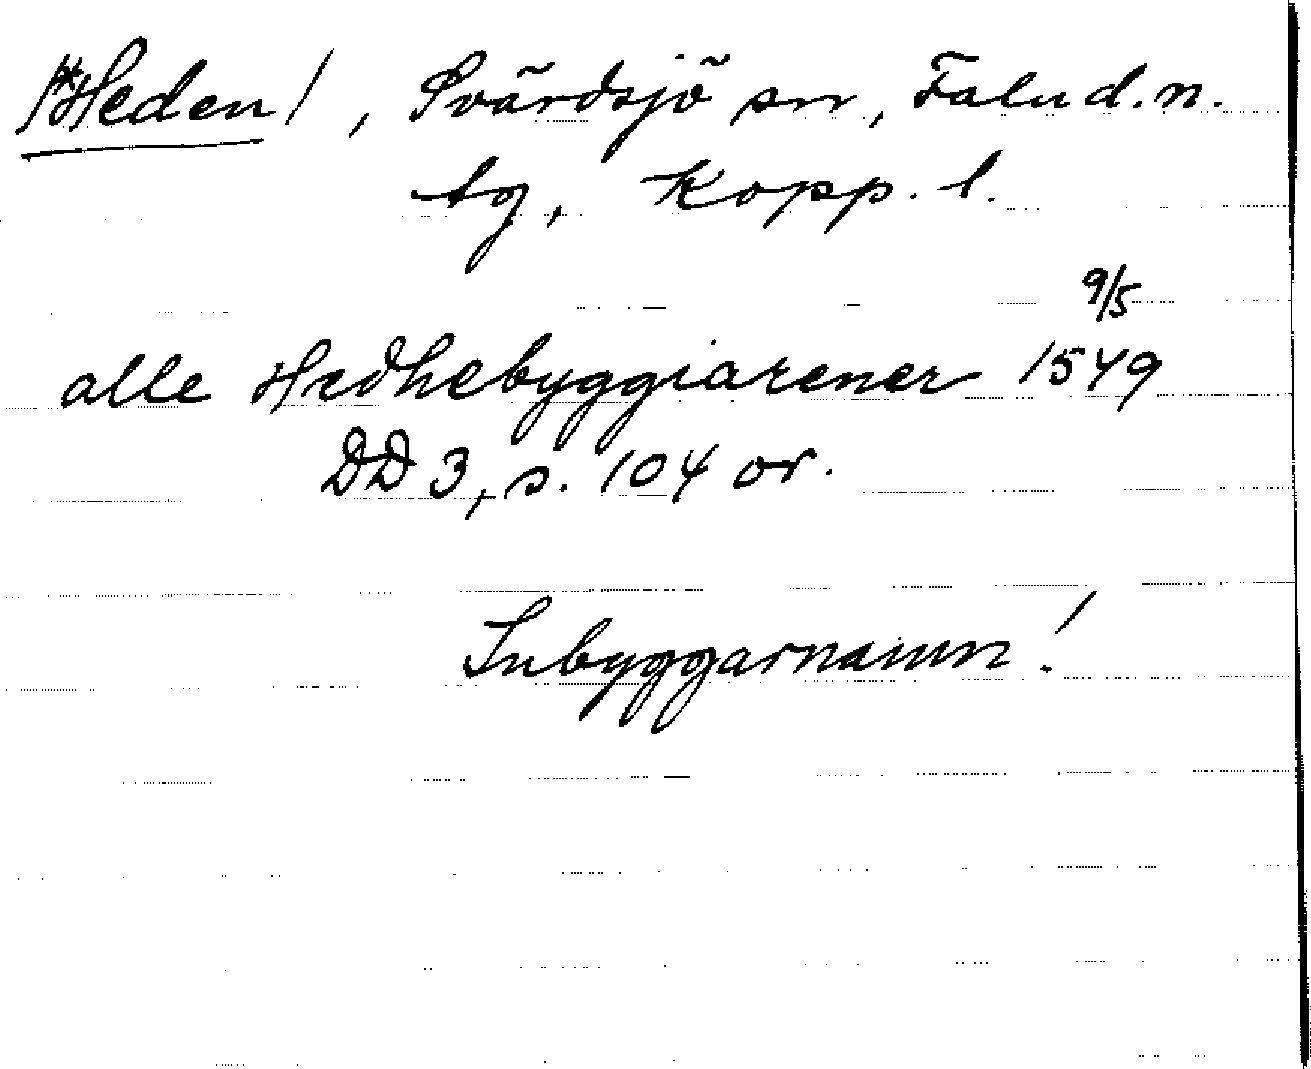 /*Heden/, Svärdsjö sn, Falu d.n.
tg, Kopp. l.
9/5
alle Hedhebyggiarener 1549
DD 3, s. 104 or.
Inbyggarnamn!